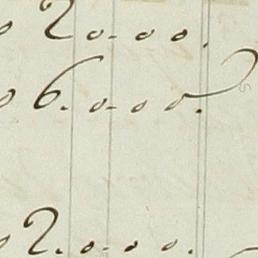 0 20.-0 0.
0 6.0-0 0.
0 2.0-0 0.